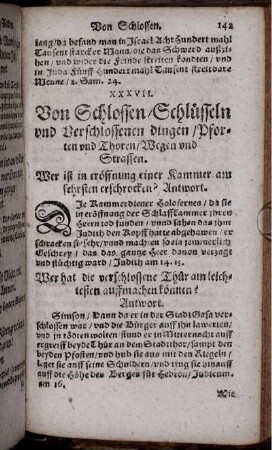 Von Schlossen. 142
lang/da befand man in Israel Acht hundert mahl
Tausent starcker Mann/die das Schwerd außzi-
hen/vnd wider die Feinde streiten kondten/vnd
in Juda Fünff hundert mahl Tausent streitbare
Menne/2. Sam. 24.
XXXVII.
Von Schlossen/Schlüsseln
vnd Verschlossenen dingen/Pfor-
ten vnd Thoren/Wegen vnd
Strassen.
Wer ist in eröffnung einer Kammer am
sehrsten erschrocken? Antwort.
Die Kammerdiener Holofernes/da sie
in eröffnung der Schlaffkammer jhren
Herrn tod funden/vnnd sahen das jhm
Judith den Kopff hatte abgehawen/er-
schracken sie sehr/vnnd machten so ein jemmerlich
Geschrey/das das gantze Heer dauon verzagt
vnd flüchtig ward/Judith am 14. 15.
Wer hat die verschlossene Thür am leich-
testen auffmachen können?
Antwort.
Simson/Dann da er in der Stadt Gasa ver-
schlossen war/vnd die Bürger auff jhn lawerten/
vnd jn tödten wolten/stund er in Mitternacht auff
ergreiff beyde Thür an dem Stadtthor/sampt den
beyden Pfosten/vnd hub sie aus mit den Riegeln/
leget sie auff seine Schuldern/vnd trug sie hinauff
auff die Höhe des Berges für Hebron/Judicum.
am 16.
Wie